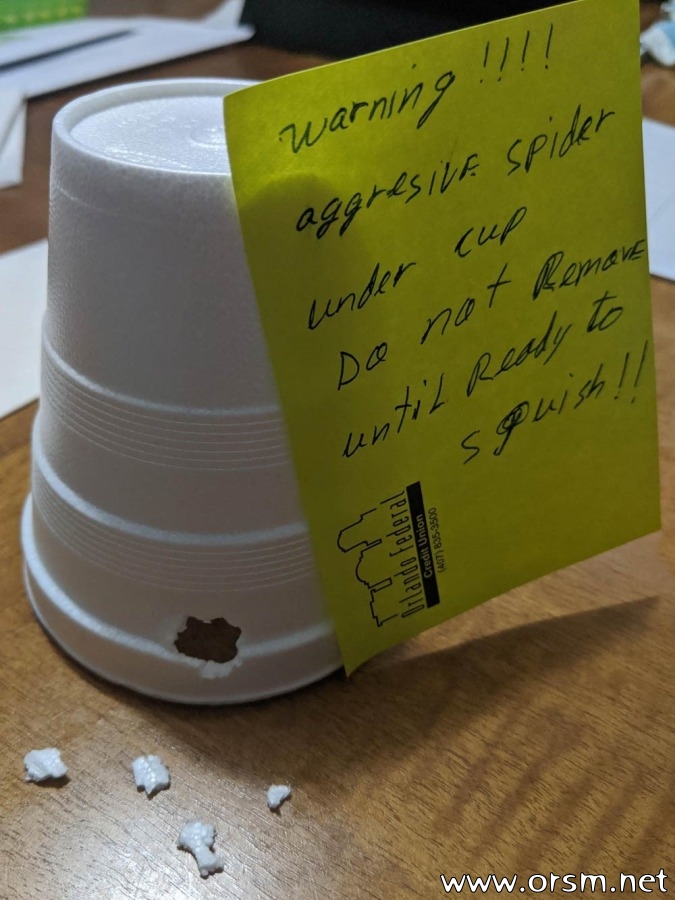 Warning !!!!
aggresive spider
under cup
Do not Remove
until Ready to
squish!!
Orlando Federal
Credit Union
(407) 835-3500
www.orsm.net